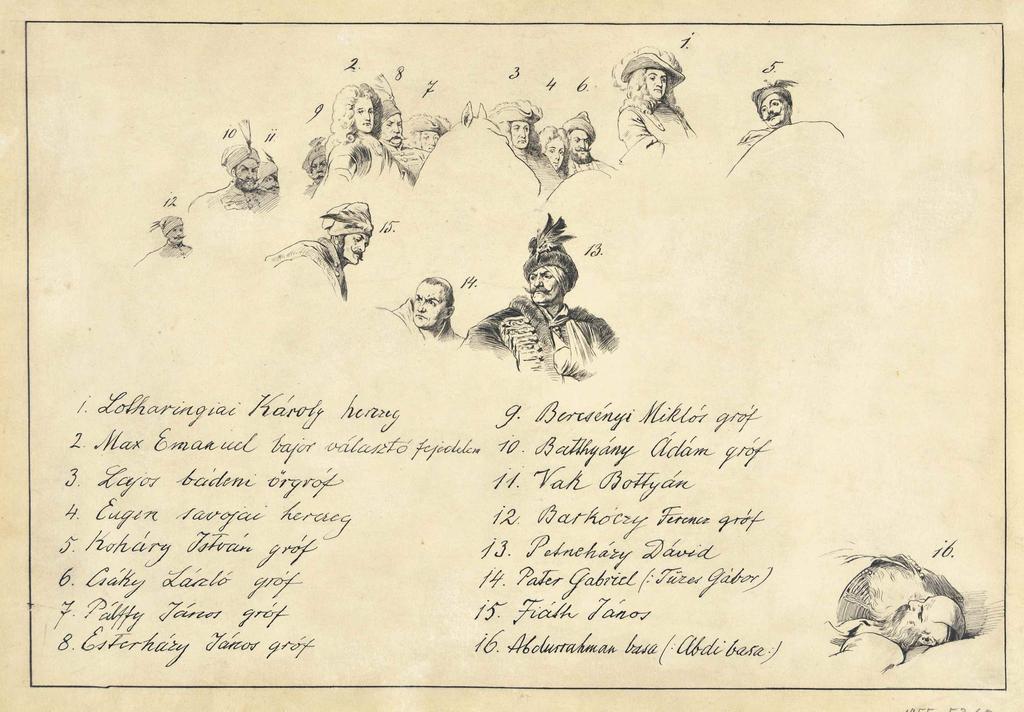 1.
2.
8
7
3
4
6.
5.
9
10
11
12
15.
13.
14.
1. Lotharingiai Károly herczeg
2. Max Emanuel bajor választó fejedelem
3. Lajos bádeni őrgróf
4. Eugen savojai herczeg
5. Koháry István gróf
6. Csáky László gróf
7. Pálffy János gróf
8. Esterházy János gróf
9. Bercsényi Miklós gróf
10. Batthyány Ádám gróf
11. Vak Bottyán
12. Barkóczy Ferencz gróf
13. Petneházy Dávid
14. Pater Gabriel (: Tüzes Gábor)
15. Fiáth János
16. Abdurrahman basa (: Abdi basa :)
16.